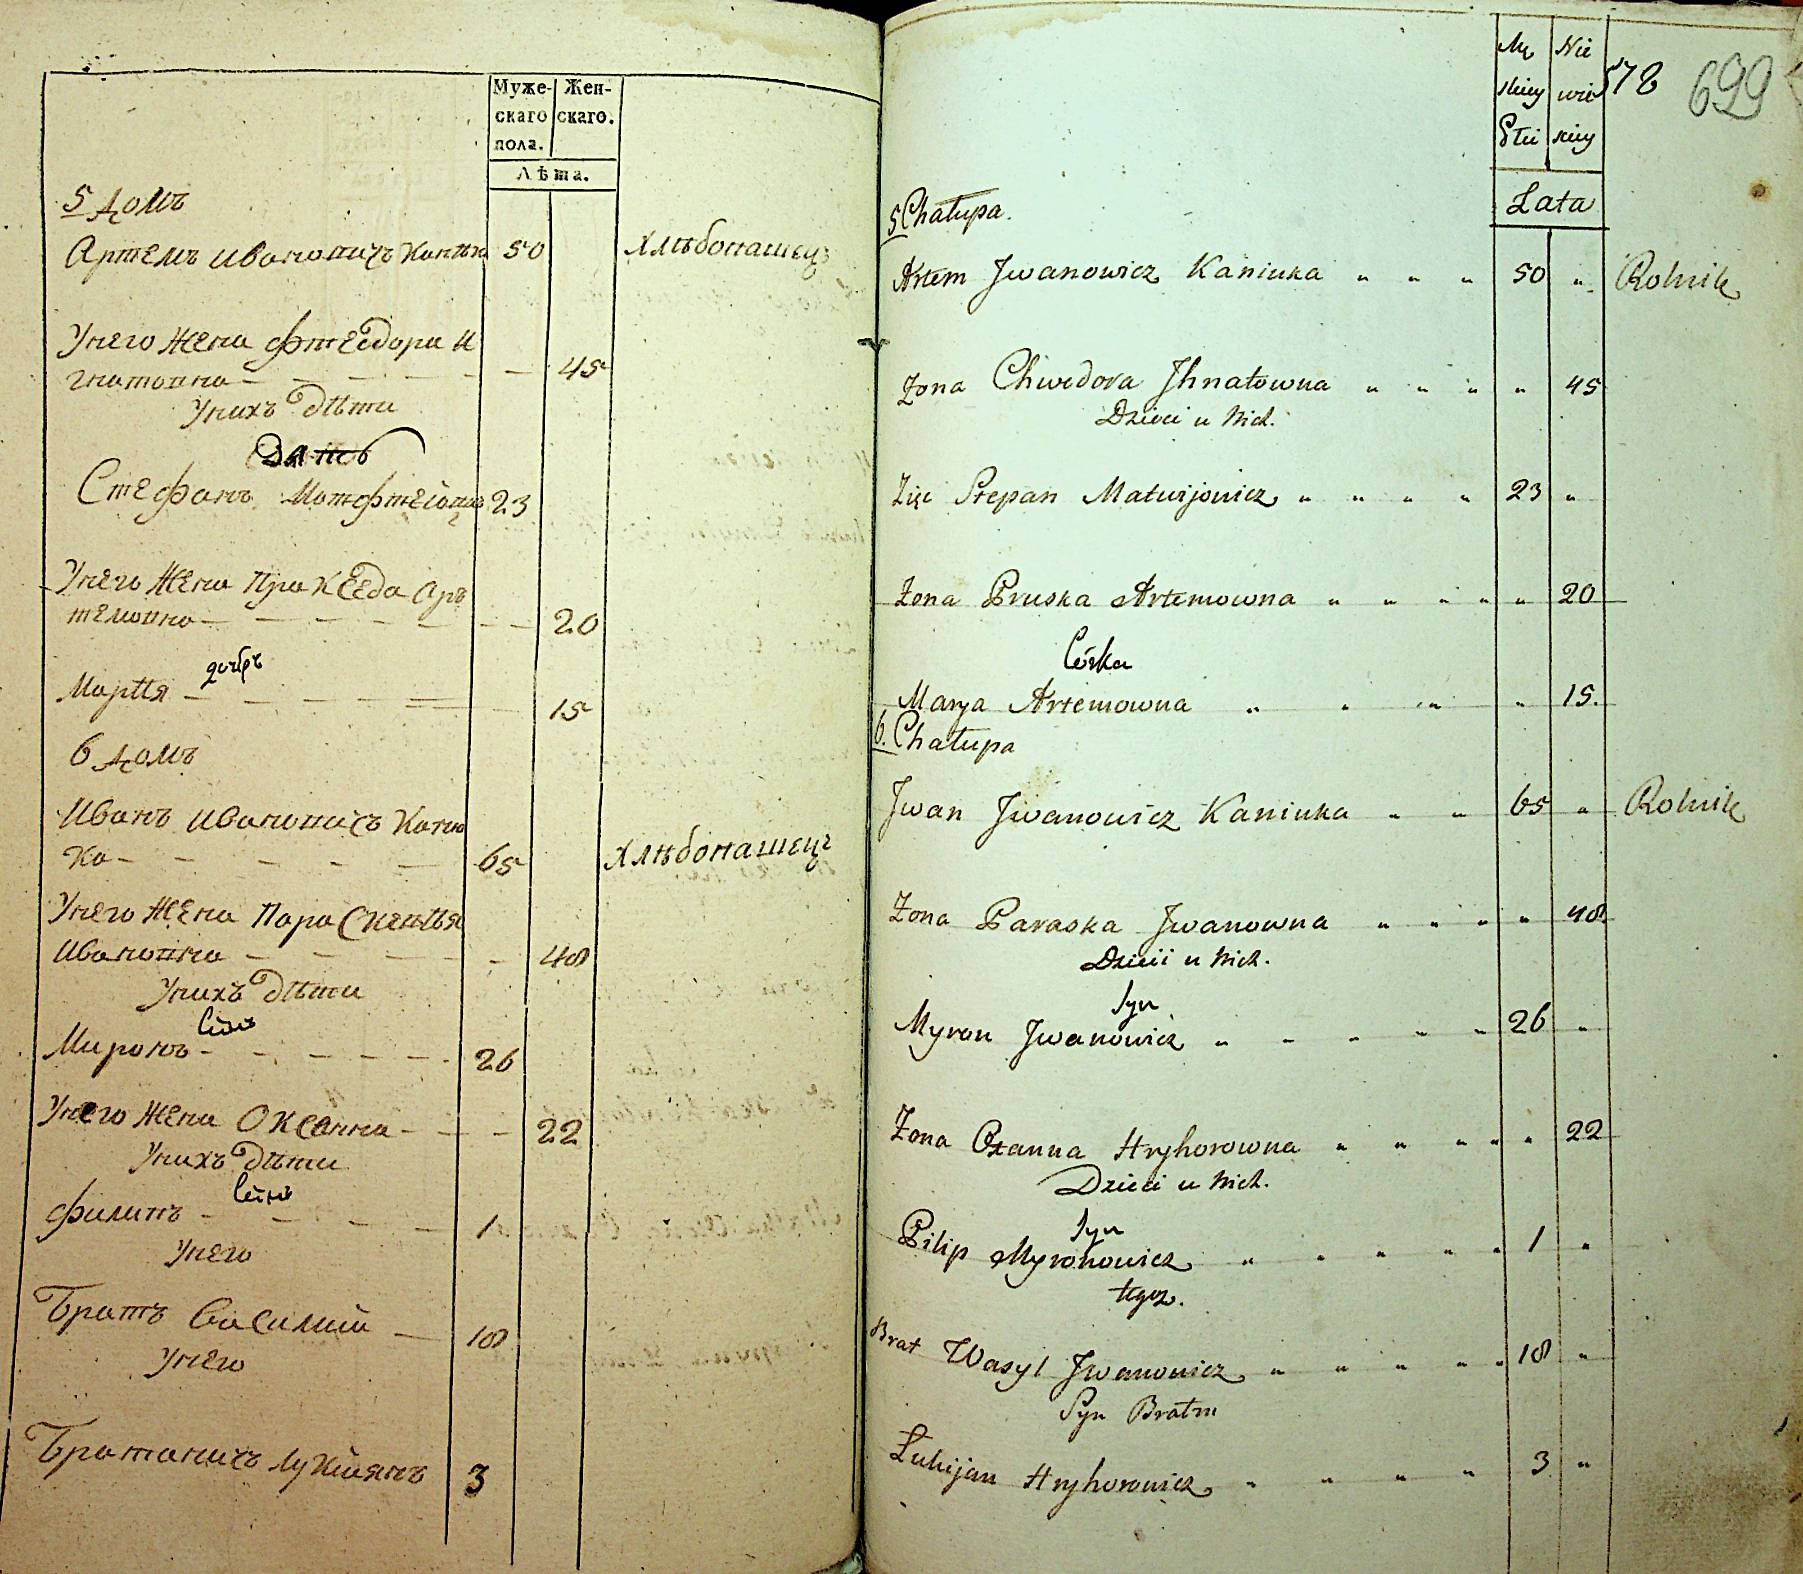 Муже- Жен-
скаго скаго.
пола.
Лѣта.
5 домъ
Артемъ Ивановичъ Канюка 50 хлѣбопашецъ
Унего жена Фтеодора И
гнатовна 45
Унихъ дѣти
Стефанъ Матфтеовичъ 23
Унего жена Пракседа Ар
темовна 20
дочеръ
Марiя 15
6 домъ
Иванъ Ивановичъ Каню
ка 65 хлѣбопашецъ
Унего жена Параскевiя
Ивановна 48
Унихъ дѣти
Сынъ
Миронъ 26
Унего жена Оксанна 22
Унихъ дѣти
Сынъ
Филипъ 1
Унего
Братъ Василий 18
Унего
Братаничъ Лукиянъ 3
Mę Nie
skiey wie
Płci skiey
Lata
578 699
5 Chałupa.
Artem Jwanowicz Kaniuka " " " 50 " Rolnik
Żona Chwedora Jhnatowna " " " " 45
Dzieci u Nich.
Zięć Stepan Matwijowicz " " " " 23 "
Żona Pruska Artemowna " " " " " 20
Córka
Marya Artemowna " " " " 15.
6. Chałupa
Jwan Jwanowicz Kaniuka " " 65 " Rolnik
Żona Paraska Jwanowna " " " " 48
Dzieci u Nich.
Syn
Myron Jwanowicz " " " " " 26 "
Żona Oxanna Hryhorowna " " " " " 22
Dzieci u Nich.
Syn
Pilip Myronowicz " " " " " 1 "
tegoż.
Brat Wasyl Jwanowicz " " " " " 18 "
Syn Brata
Łukijan Hryhorowicz " " " " 3 "